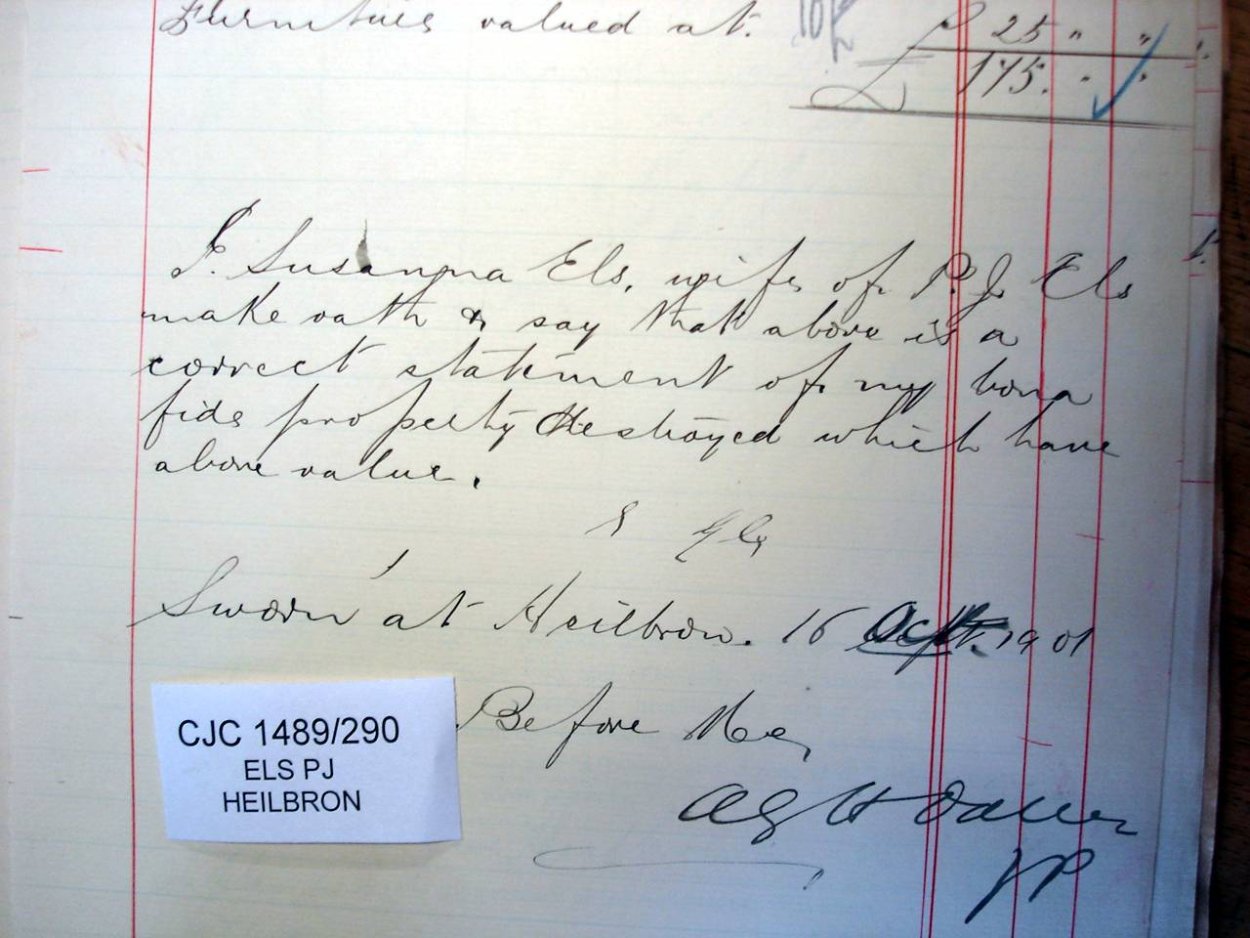 Furnitures valued at. £ 25 " "
£ 175. " "
I. Susanna Els, wife of P. J. Els
make oath & say that above is a
correct statement of my bona
fide property destroyed which have
above value.
S Els
Sworn at Heilbron. 16 Oct. 1901
Before Me,
JP
CJC 1489/290
ELS PJ
HEILBRON